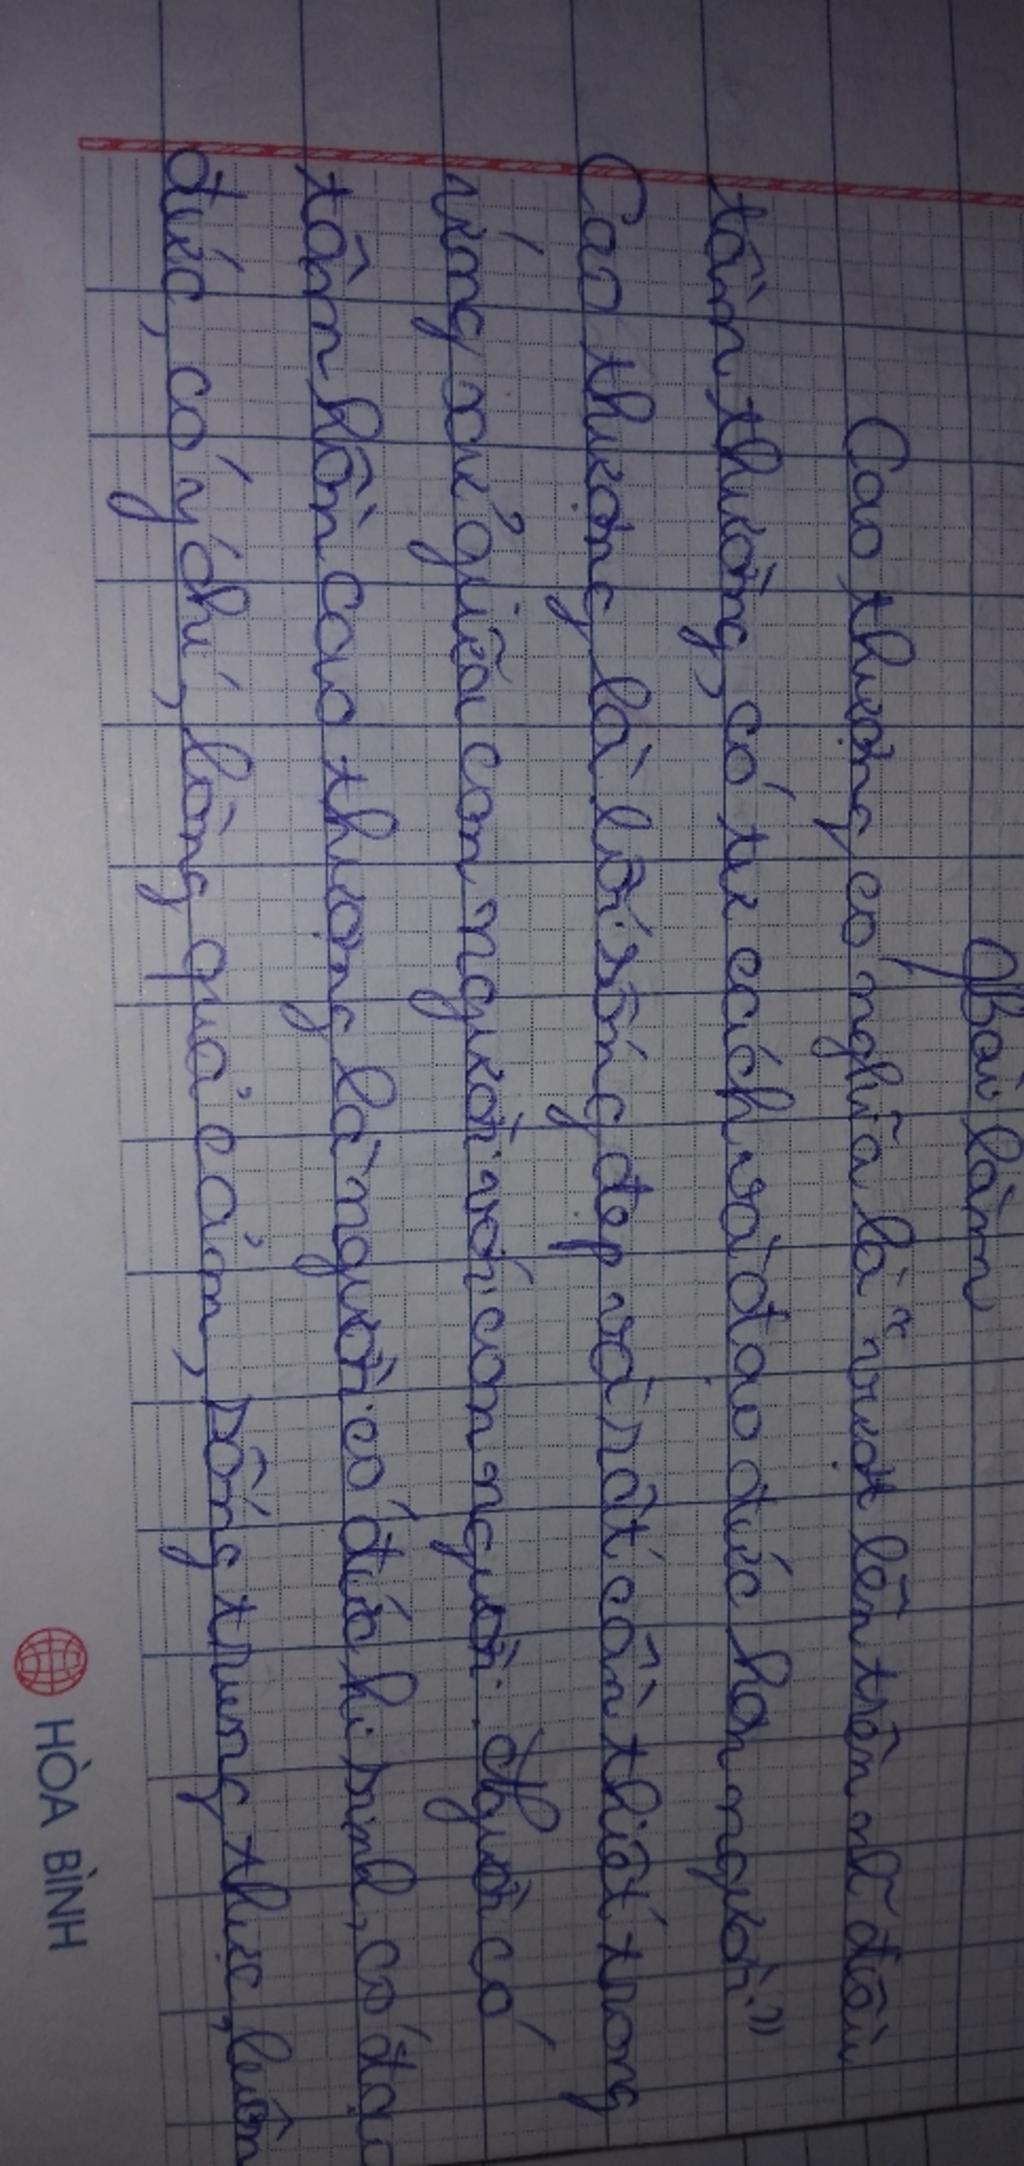 Bài làm
Cao thượng có nghĩa là "vượt lên trên những điều
tầm thường, có tư cách và đạo đức hơn người."
Cao thượng là lối sống đẹp và rất cần thiết trong
ứng xử giữa con người với con người. Người có
tâm hồn cao thượng là người có đức hi sinh, có đạo
đức, có ý chí, lòng quả cảm, sống trung thực, luôn
HÒA BÌNH